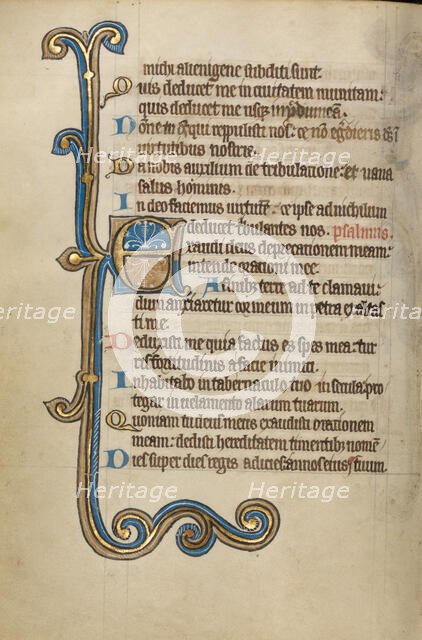 michi alienigene subditi sunt:
Quis deducet me in civitatem munitam:
quis deducet me usq; in ydumeam.
Nonne tu qui reppulisti nos: et non egredieris
virtutibus nostris.
Da nobis auxilium de tribulatione: et vana
salus hominis.
In deo faciemus virtutem: et ipse ad nichilum
deducet tribulantes nos. psalmus.
Exaudi deus deprecationem meam:
intende orationi mee.
A finibus terre ad te clamavi:
dum anxiaretur cor meum in petra exaltas
ti me.
Deduxisti me quia factus es spes mea: tur
ris fortitudinis a facie inimici.
Inhabitabo in tabernaculo tuo in secula: pro
tegar in velamento alarum tuarum.
Quoniam tu deus meus exaudisti orationem
meam: dedisti hereditatem timentibus nomen
Dies super dies regis adicies: annos eius tuum.
Heritage Heritage
Heritage Heritage Heritage
Heritage Heritage